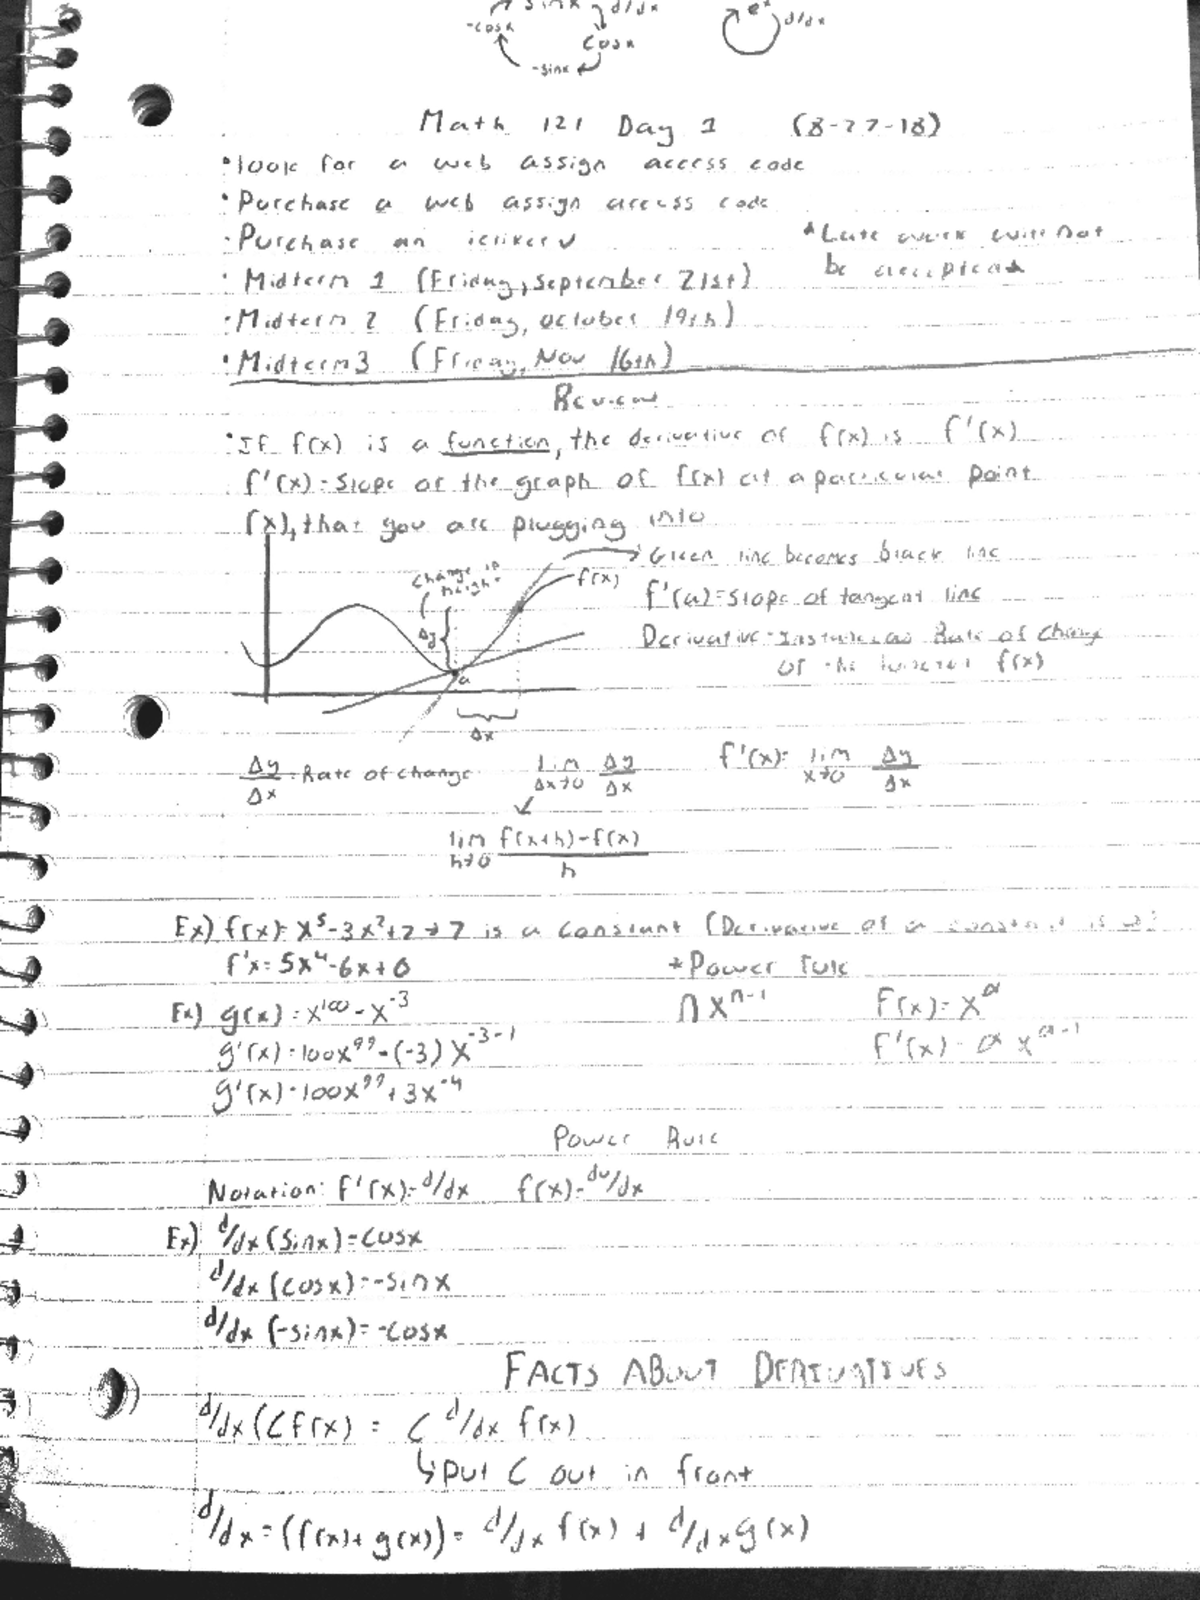 sinx d/dx
-cosx
cosx
-sinx
e^x d/dx
Math 121 Day 1 (8-27-18)
• look for a web assign access code
• Purchase a web assign access code
• Purchase an iclicker
* Late work will not
be accepted
• Midterm 1 (Friday, September 21st)
• Midterm 2 (Friday, October 19th)
• Midterm 3 (Friday, Nov 16th)
Review
• If f(x) is a function, the derivative of f(x) is f'(x)
f'(x) = Slope of the graph of f(x) at a particular point
(x), that you are plugging into
Green line becomes black line
Change in
height
f(x)
f'(a) = Slope of tangent line
Δy
Derivative = Rate of change
of the function f(x)
a
Δx
Δy/Δx = Rate of change lim Δx→0 Δy/Δx f'(x) = lim x→0 Δy/Δx
lim h→0 f(x+h)-f(x)/h
Ex) f(x) = x^5-3x^2+7 → 7 is a constant (Derivative of a constant is
f'x = 5x^4-6x+0 *Power rule
Ex) g(x) = x^100 - x^-3 nx^n-1 F(x) = x^a
g'(x) = 100x^99 - (-3)x^-3-1 f'(x) = a x^a-1
g'(x) = 100x^99 + 3x^-4
Power Rule
Notation: f'(x) = d/dx f(x) = dy/dx
Ex) d/dx (sinx) = cosx
d/dx (cosx) = -sinx
d/dx (-sinx) = -cosx
FACTS ABOUT DERIVATIVES
d/dx (Cf(x) = C d/dx f(x)
↳ put C out in front
d/dx = (f(x) + g(x)) = d/dx f(x) + d/dx g(x)